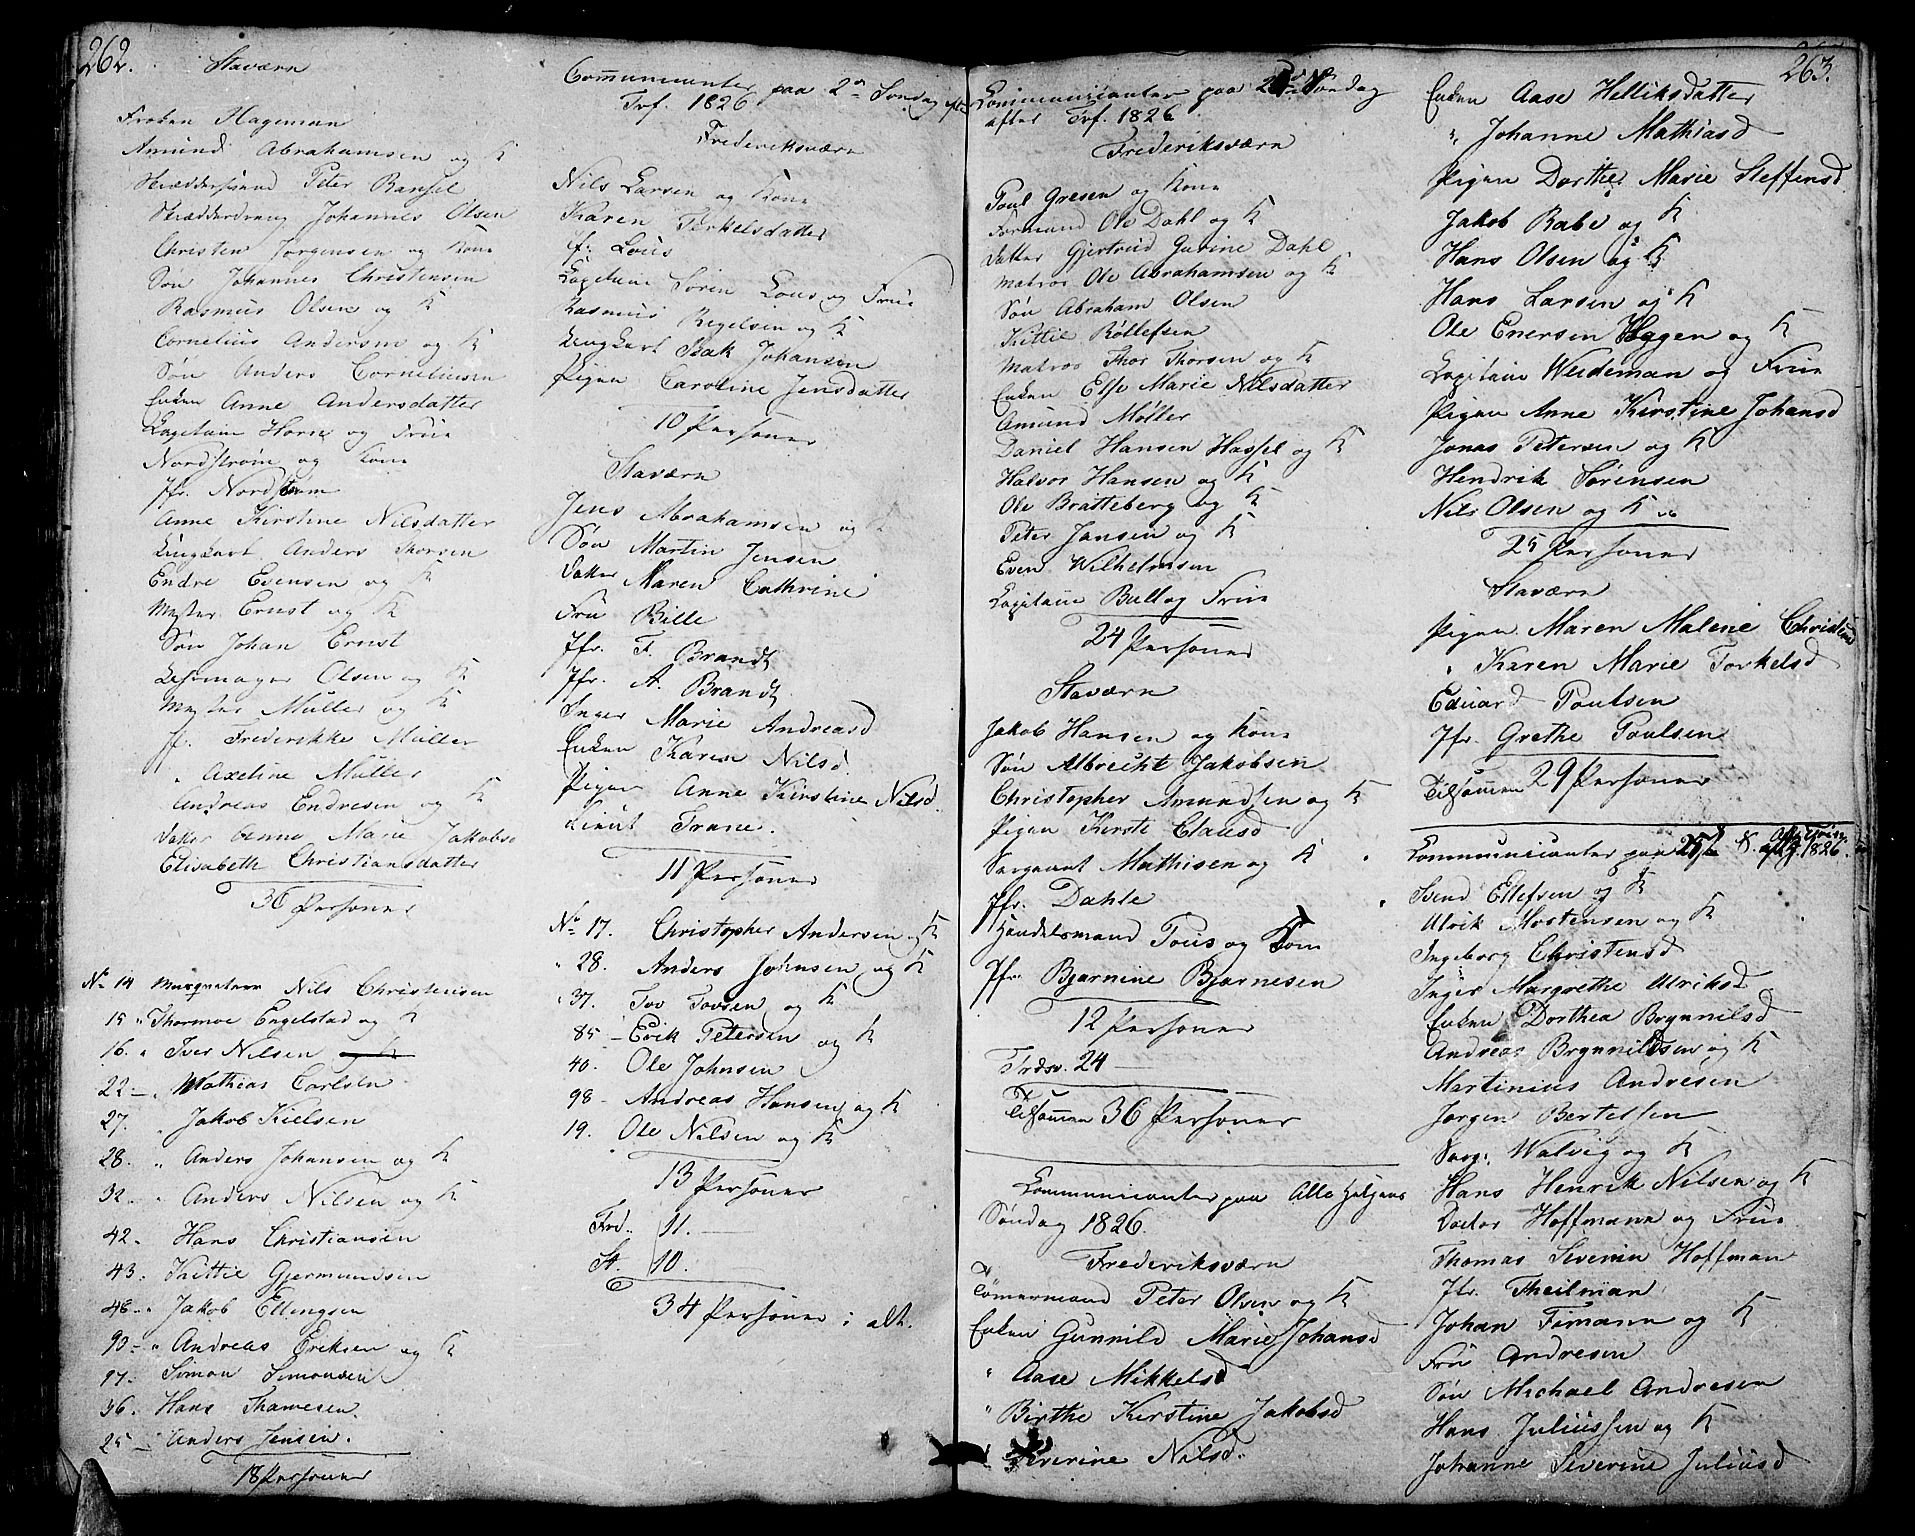 262.
Staværn
Frøken Hageman
Amund Abrahamsen og K
Skræddersvend Peter Bansel
Skrædderdreng Johannes Olsen
Christen Jørgensen og Kone
Søn Johannes Christensen
Rasmus Olsen og K
Cornelius Andersen og K
Søn Anders Corneliusen
Enken Anne Andersdatter
Capitain Horn og Frue
Nordstrøm og Kone
Jfr. Nordstrøm
Anne Kirstine Nilsdatter
Anders Thorsen
Endre Evensen og K
Mester Ernst og K
Søn Johan Ernst
Olsen og K
Mester Müller og K
Jf. Frederikke Müller
" Axeline Müller
Andreas Endresen og K
Datter Anne Marie Jakobsd
Elisabeth Christiansdatter
36 Personer
No 14 Musqueteer Nils Christensen
15 " Thormoe Engelstad og K
16. " Iver Nilsen
22 - " Mathias Carlsen
27. " Jakob Kielsen
28. " Anders Johansen og K
32 - " Anders Nilsen og K
42. - Hans Christiansen
43. - Kittil Gjermundsen
48 - " Jakob Ellingsen
90 - " Andreas Eriksen og K
97. - Simon Simonsen
36. - Hans Thamesen
25 - Anders Jensen.
18 Personer
Communicanter paa 2den Søndag efter
Trf. 1826
Frederiksværn
Nils Larsen og Kone
Karen Terkelsdatter
Jf. Lous
Capitain Søren Lous og Frue
Rasmus Regelsen og K
Isak Johansen
Pigen Caroline Jensdatter
10 Personer
Staværn
Jens Abrahamsen og K
Søn Martin Jensen
Datter Maren Cathrine
Fru Bille
Jfr. F. Brandt
Jfr. A. Brandt
Inger Marie Andreasd
Enken Karen Nilsd
Pigen Anne Kirstine Nilsd.
Lieut Trane.
11 Personer
No 17. Christopher Andersen og K
" 28. Anders Jørensen og K
" 37. Tov Tovsen og K
85 - Erik Petersen og K
40. Ole Johnsen
98 - Andreas Hansen og K
19. Ole Nilsen og K
13 Personer
Frd. 11. -
St. 10. -
34 Personer i alt.
263.
Communicanter paa Søndag
efter Trf. 1826
Frederiksværn
Poul Gresen og Kone
Formand Ole Dahl og K
Datter Gjertrud Gurine Dahl
Matros Ole Abrahamsen og K
Søn Abraham Olsen
Kittil Rollefsen
Matros Thor Thorsen og K
Enken Else Marie Nilsdatter
Amund Møller
Daniel Hansen Hassel og K
Halvor Hansen og K
Ole Bratteberg og K
Peter Jansen og K
Even Wilhelmsen
Capitain Bull og Frue
24 Personer
Staværn
Jakob Hansen og Kone
Søn Albrecht Jakobsen
Christopher Amundsen og K
Pigen Kirsti Clausd
Sargeant Mathisen og K
Jfr. Dahle
Handelsmand Tous og Kone
Jfr. Bjarnine Bjarnesen
12 Personer
Frdsv. 24 -
Tilsammen 36 Personer
Communicanter paa Alle Helgens
Søndag 1826.
Frederiksværn
Tømermand Peter Olsen og K
Enken Gunnild Marie Johansd
" Aase Mikkelsd
" Birthe Kirstine Jakobsd
" Severine Nilsd.
Enken Aase Helliksdatter
" Johanne Mathiasd
Pigen Dorthe Marie Steffensd
Jakob Rabe og K
Hans Olsen og K
Hans Larsen og K
Ole Enersen Haagen og K
Capitain Weideman og Frue
Pigen Anne Kirstine Johansd
Jonas Petersen og K
Hendrik Sørensen
Nils Olsen og K
25 Personer
Staværn
Pigen Maren Malene Christens
" Karen Marie Torkelsd
Eduard Poulsen
Jfr. Grethe Poulsen
Tilsammen 29 Personer
Communicanter paa 25 S. aft. Trin. 1826.
Svend Ellefsen og K
Ulrik Mortensen og K
Ingeborg Christensd
Inger Margrethe Ulriksd
Enken Dorthea Brynnilsd
Andreas Brynnildsen og K
Martinius Andresen
Jørgen Bertelsen
Sarg. Walvig og K
Hans Henrik Nilsen og K
Doctor Hoffmann og Frue
Thomas Severin Hoffman
Jfr. Theilman
Johan Timann og K
Fru Andresen
Søn Michael Andresen
Hans Juliussen og K
Johanne Severine Juliusd